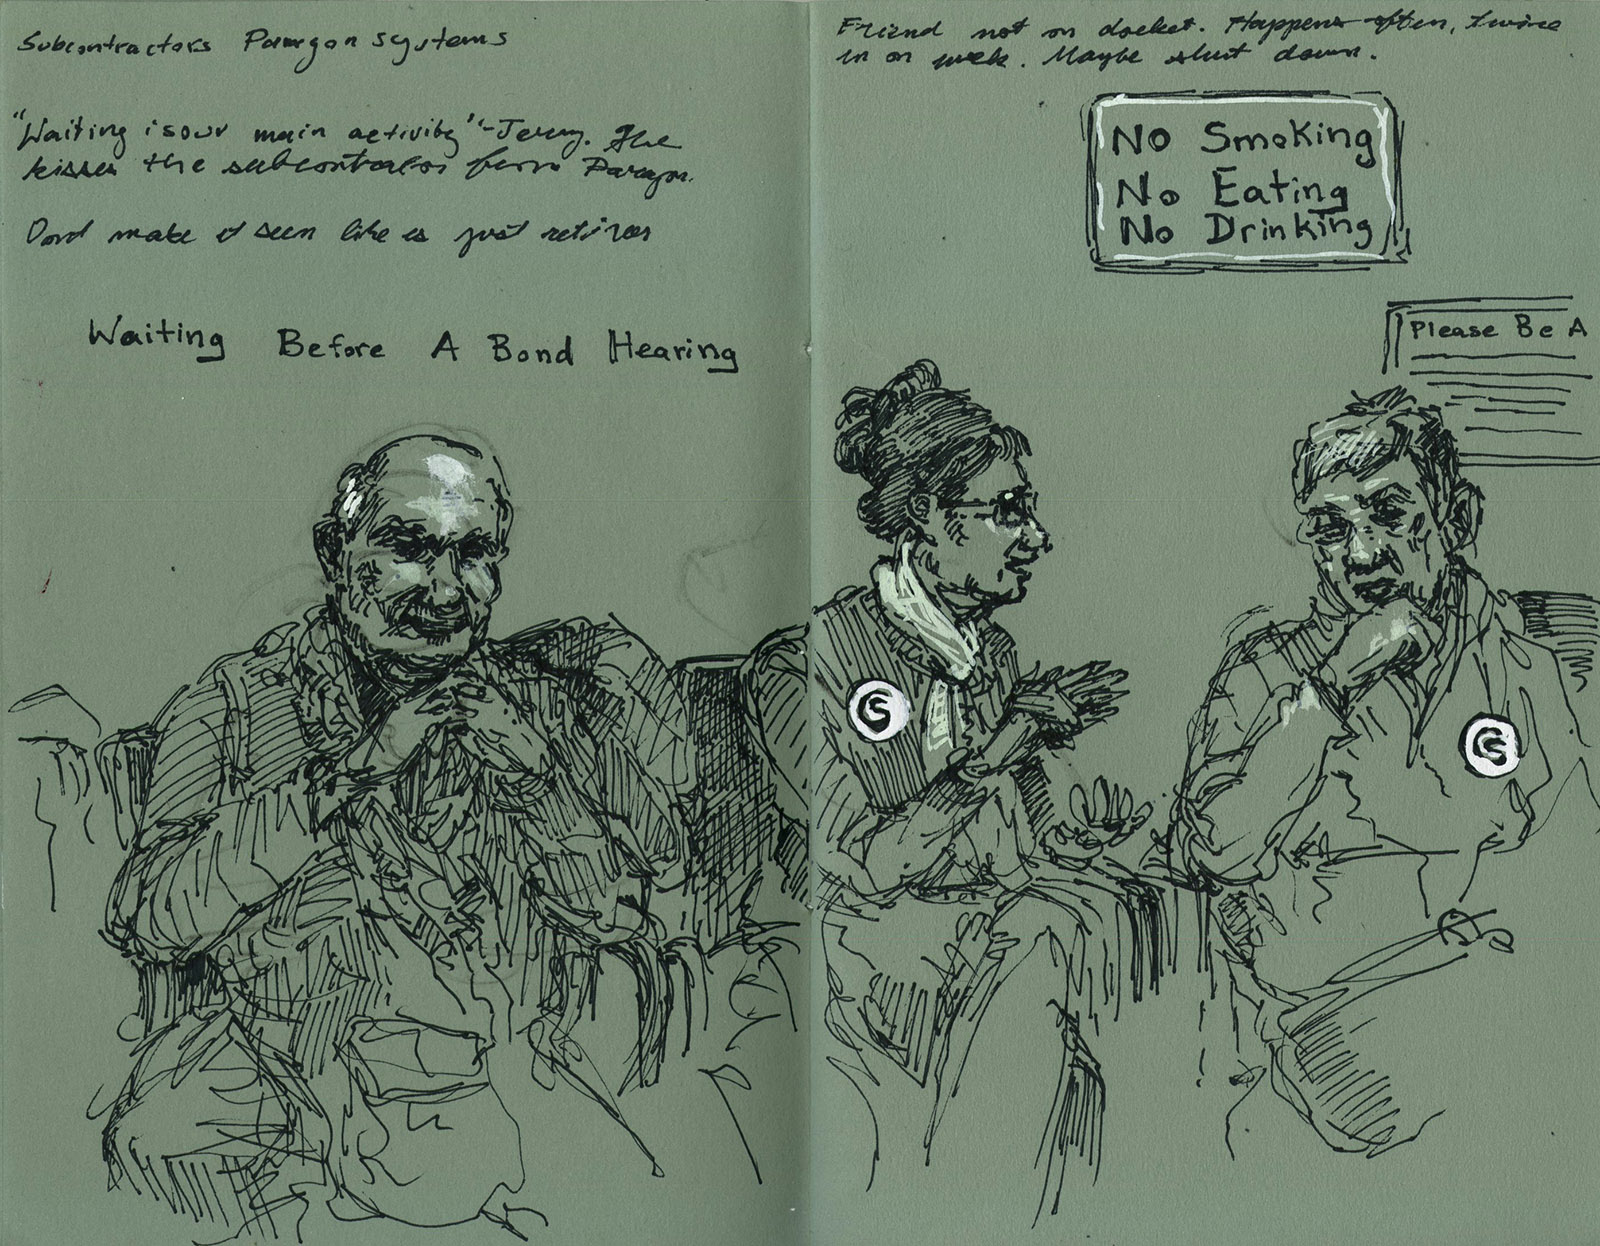 Subcontractors Paragon systems
"Waiting is our main activity" - Jerry. She
kisses the subcontractor from Paragon.
Dont make it seem like is just retirees
Waiting Before A Bond Hearing
Friend not on docket. Happens often, twice
in on week. Maybe shut down.
No Smoking
No Eating
No Drinking
Please Be A
CS
GS